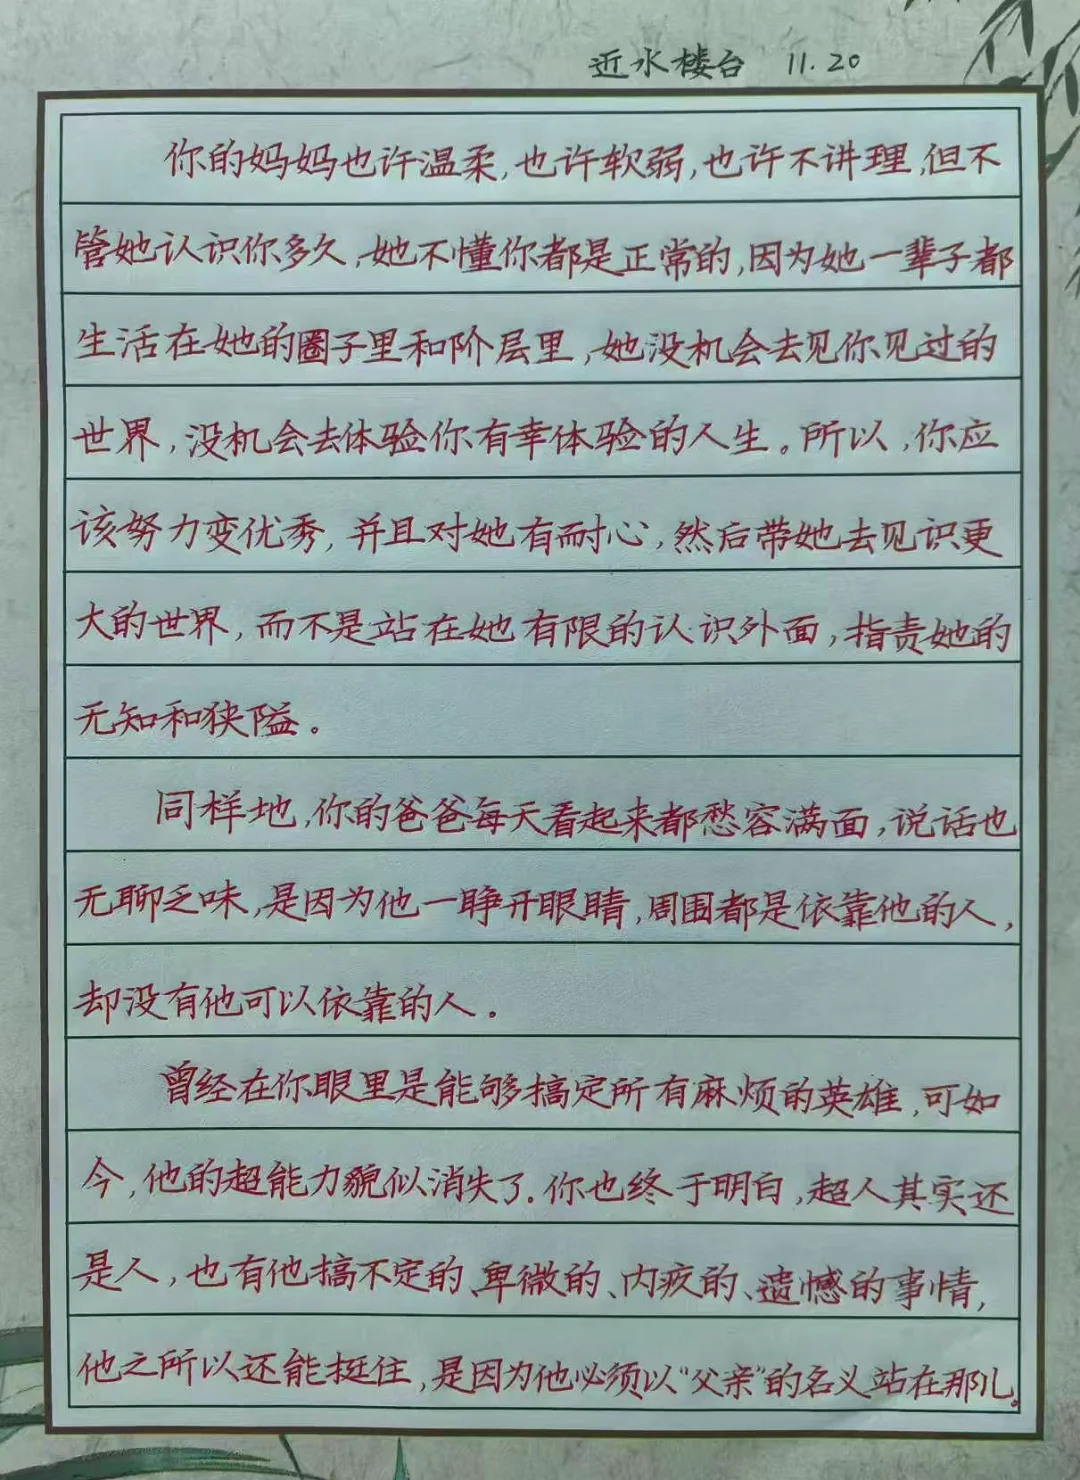 近水楼台 11.20
你的妈妈也许温柔,也许软弱,也许不讲理,但不
管她认识你多久,她不懂你都是正常的,因为她一辈子都
生活在她的圈子里和阶层里,她没机会去见你见过的
世界,没机会去体验你有幸体验的人生。所以,你应
该努力变优秀,并且对她有耐心,然后带她去见识更
大的世界,而不是站在她有限的认识外面,指责她的
无知和狭隘。
同样地,你的爸爸每天看起来都愁容满面,说话也
无聊乏味,是因为他一睁开眼睛,周围都是依靠他的人,
却没有他可以依靠的人。
曾经在你眼里是能够搞定所有麻烦的英雄,可如
今,他的超能力貌似消失了.你也终于明白,超人其实还
是人,也有他搞不定的、卑微的、内疚的、遗憾的事情,
他之所以还能挺住,是因为他必须以“父亲”的名义站在那儿。